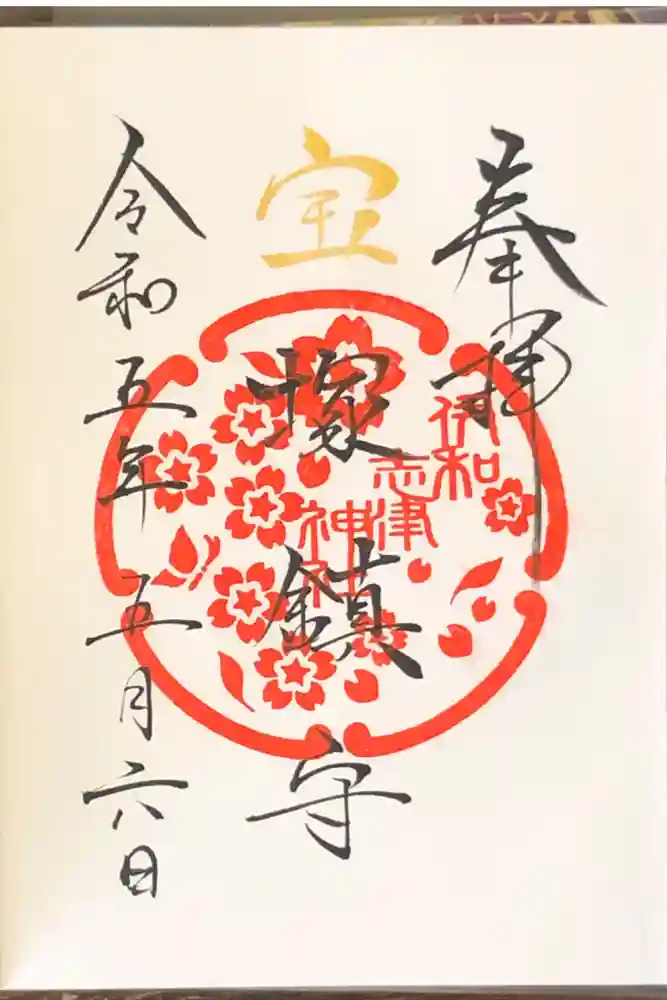 奉拝
宝塚鎮守
令和五年五月六日
伊和
志津
神社